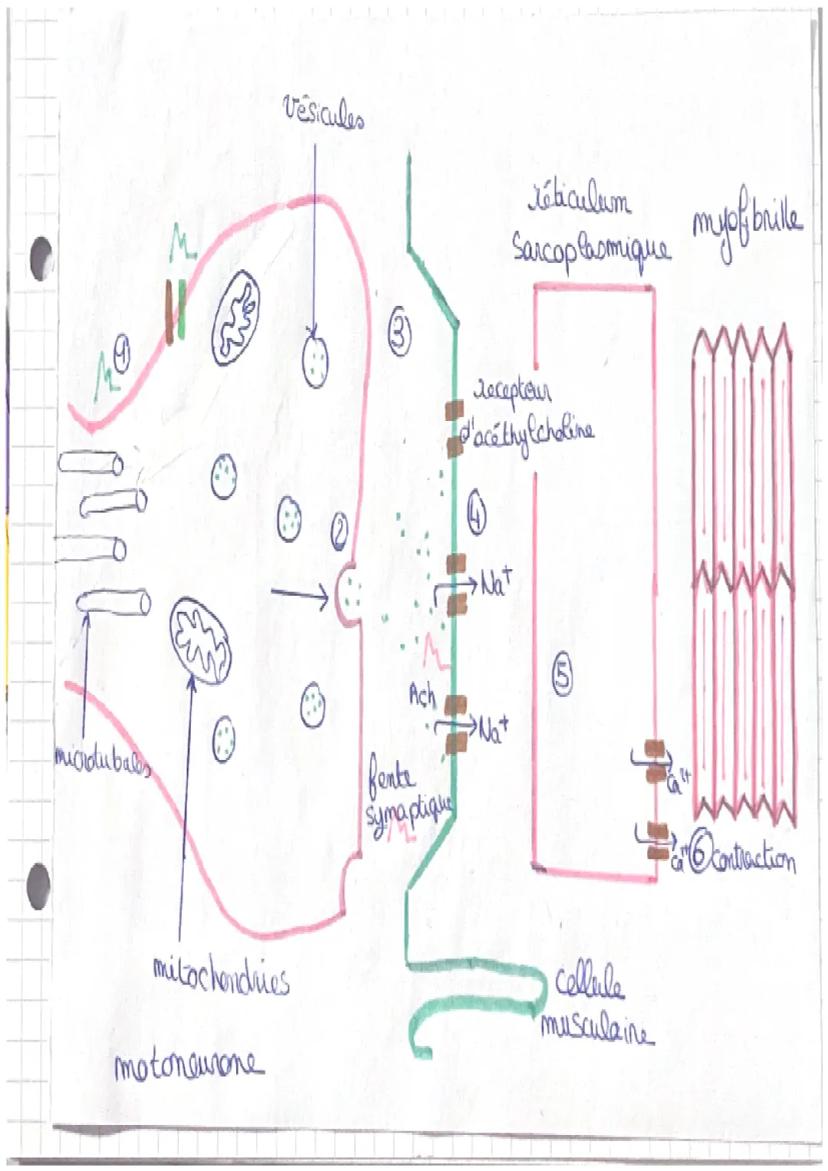 Vésicules
réticulum
Sarcoplasmique
myofibrille
1
3
recepteur
d'acéthylcholine
2
4
Na⁺
5
Ach
Na⁺
microtubules
fente
synaptique
Ca²⁺
Ca²⁺ 6 contraction
mitochondries
cellule
musculaire
motoneurone